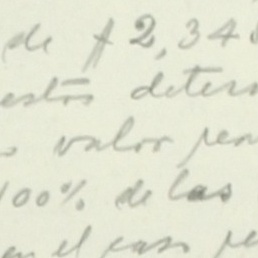 de $2,346
estos deter
valor rea
100% de las
en el caso pe